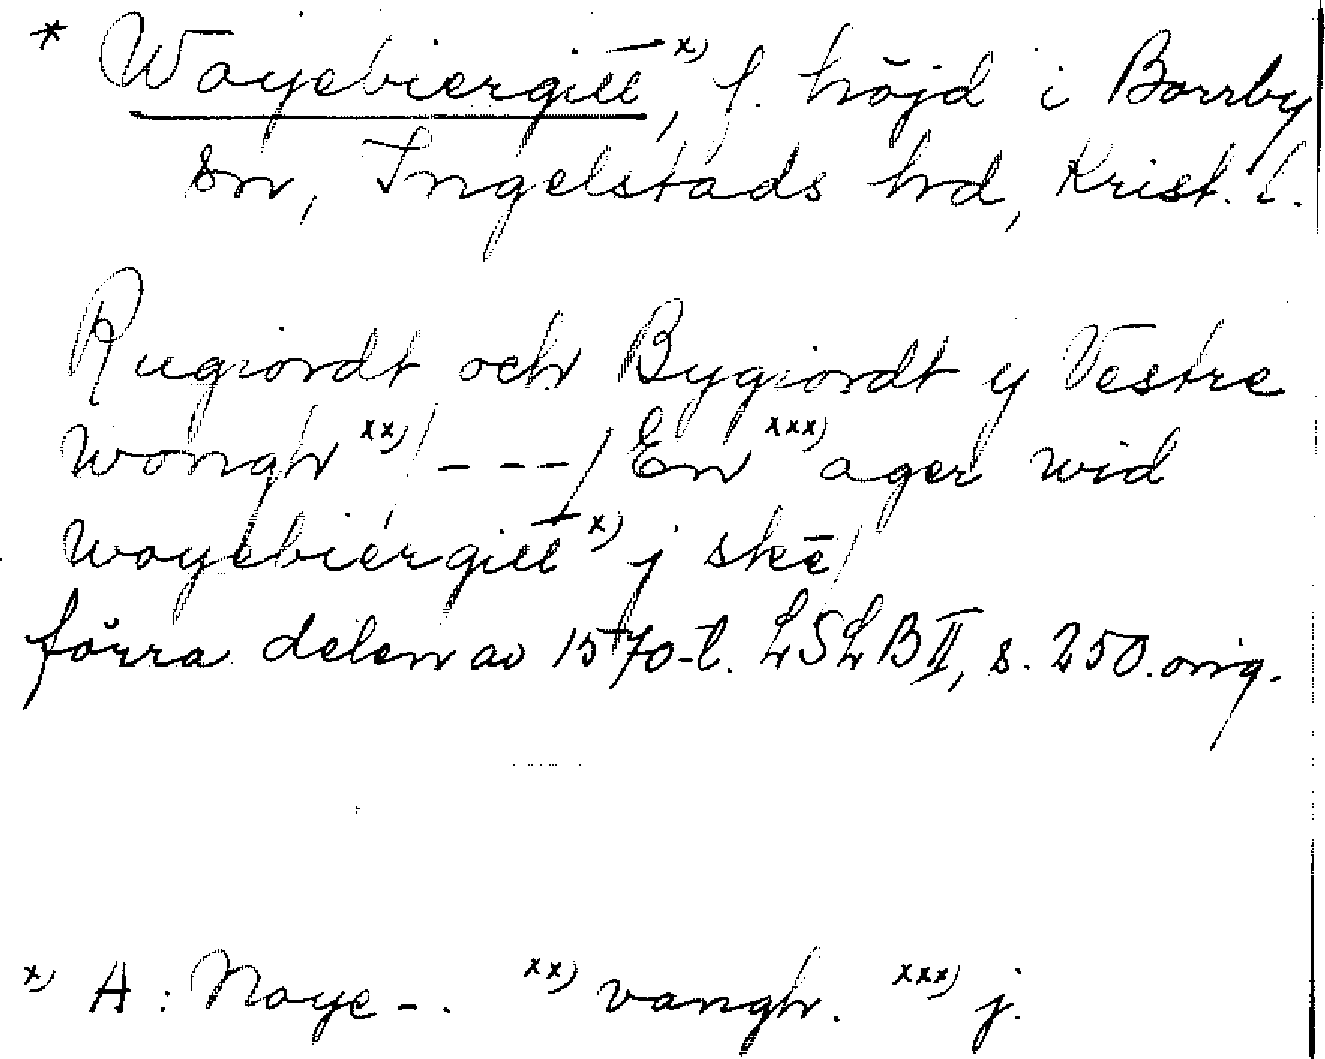 * Woyebiergitt x), f. höjd i Borrby
sn, Ingelstads hd, Krist. l.
Rugiordt och Bygiordt y Vestre
wongh xx) /---/ En xxx) ager wid
woyebiergitt x) j skē/
förra delen av 1570-t. LSLB II, s. 250. orig.
x) A: Noye-. xx) vangh. xxx) j.